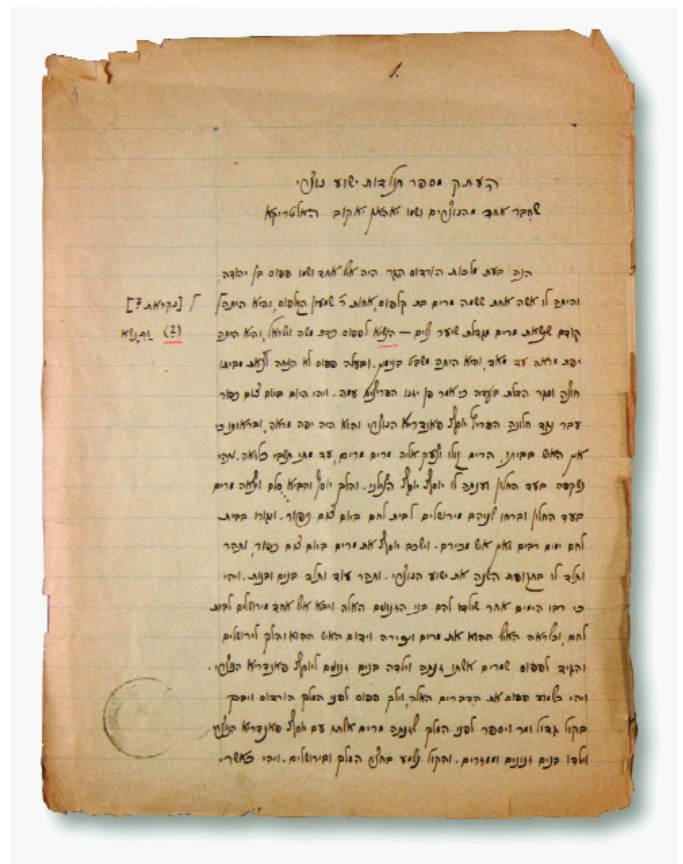 1.
העתק מספר תולדות ישוע נוצרי
שחבר אחד מהנוצרים ושמו יאהאן יאקוב האלטריקא
הנה בעת מלכות הורדוס הגר היה איש אחד ושמו פפוס בן יהודה,
והיתה לו אשה אחת ששמה מרים בת קלפוס, אחות ר׳ שמעון הקלפוס, והיא היתה /
/ [נקראת ?]
קודם שנשאת מרים מגדלת שיער נשים — הנשא לפפוס כדת משה וישראל, והיא היתה
(?) ותנשא
יפת מראה עד מאד, והיא היתה משבט בנימין. ובעלה פפוס לא הניחה לצאת מביתו
חוצה וסגר הדלת בעדה כי אמר פן יזנו הפריצים עמה. ויהי היום ביום צום כפור
עבר נגד חלונה הפריץ יוסף פאנדירא הנוצרי והוא היה יפה מראה, ובראותו כי
אין האיש בביתו, הרים קולו ויצעק אליה מרים מרים, עד מתי תשבי כלואה. ותהי
נשקפה בעד החלון וענתה לו יוסף יוסף הצילני. והלך יוסף והביא סלם ויצאה מרים
בעד החלון וברחו שניהם מירושלים לבית לחם ביום צום כפור. ויגורו בבית
לחם ימים רבים ואין איש מכירם. וישכב יוסף את מרים ביום צום כפור, ותהר
ותלד לו בתקופת השנה את ישוע הנוצרי. ותהר עוד ותלד בנים ובנות. ויהי
כי רבו הימים אחר שילדו להם בני הזנונים האלה ויבא איש אחד מירושלים לבית
לחם, וכראה האיש ההוא את מרים ויכירה וידום האיש ההוא והלך לירושלים
והגיד לפפוס שמרים אשתו זנתה וילדה בנים זנונים ליוסף פאנדירא הנוצרי.
ויהי כשמוע פפוס את הדברים האלה, וילך פפוס לפני המלך הורדוס ויבך
בקול גדול ומר ויספר לפני המלך שזנתה מרים אשתו עם יוסף פאנדירא הנוצרי
וילדו בנים זנונים וממזרים. והקול נשמע בחצר המלך ובירושלים. ויהי כאשר